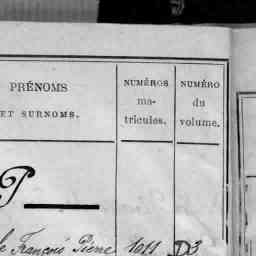 PRÉNOMS
ET SURNOMS.
NUMÉROS
ma-
tricules.
NUMÉRO
du
volume.
P
François Pierre 1011 D3